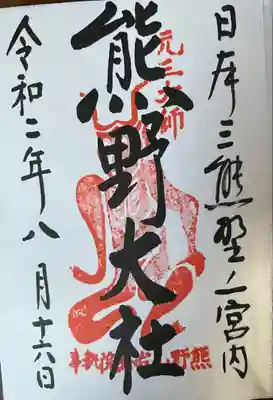 日本三熊野ノ一宮内
元三大師
熊野大社
令和二年八月十六日